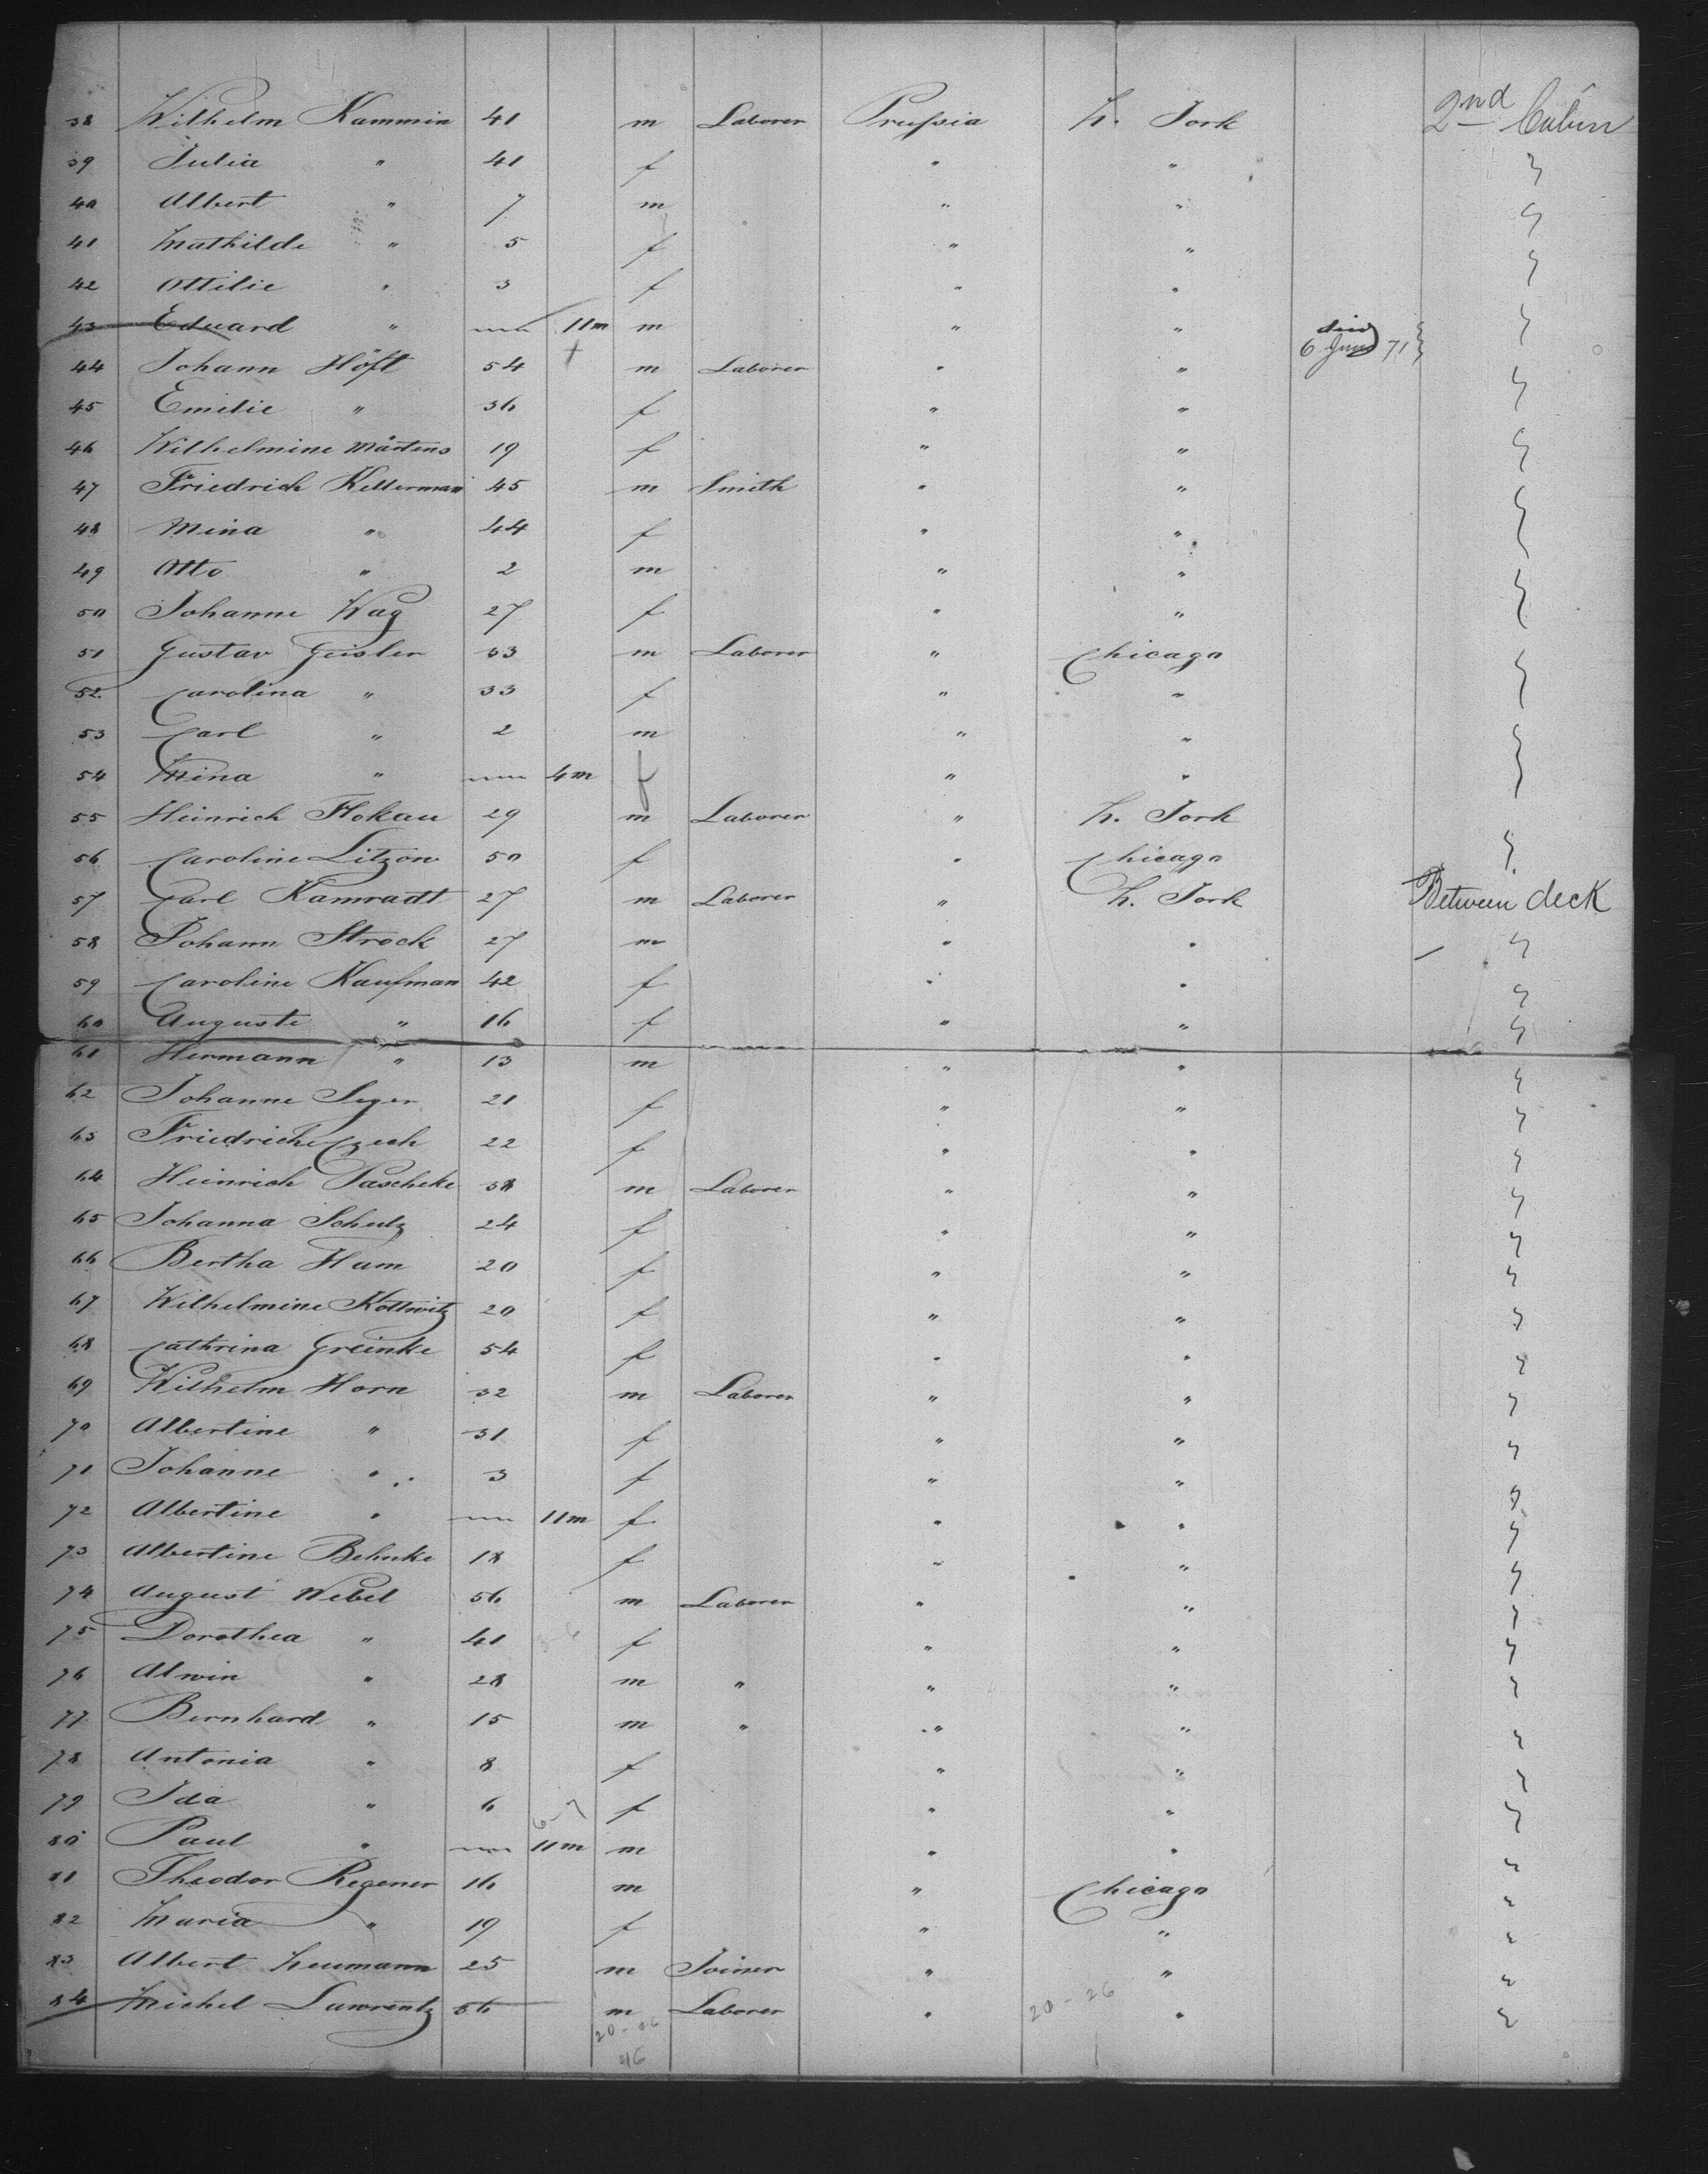 38 Wilhelm Kammin 41 m Laborer Prussia N. York 2nd Cabin
39 Julia " 41 f " " "
40 Albert " 7 m " " "
41 Mathilde " 5 f " " "
42 Ottilie " 3 f " " "
43 Eduard " 11m m " " died 6 June 71 "
44 Johann Höft 54 + m Laborer " " "
45 Emilie " 36 f " " "
46 Wilhelmine Märtens 19 f " " "
47 Friedrich Kellerman 45 m Smith " " "
48 Mina " 44 f " " "
49 Otto " 2 m " " "
50 Johanne Wag 27 f " " "
51 Gustav Geisler 33 m Laborer " Chicago "
52 Carolina " 33 f " " "
53 Carl " 2 m " " "
54 Mina " 4m f " " "
55 Heinrich Flokau 29 m Laborer " N. York
56 Caroline Litzon 50 f " Chicago "
57 Carl Kamradt 27 m Laborer " N. York Between deck
58 Johann Strock 27 m " " "
59 Caroline Kaufman 42 f " " "
60 Auguste " 16 f " " "
61 Hermann " 13 m " " "
62 Johanne Seger 21 f " " "
63 Friedriche Czech 22 f " " "
64 Heinrich Paschke 38 m Laborer " " "
65 Johanna Schulz 24 f " " "
66 Bertha Ham 20 f " " "
67 Wilhelmine Kottwitz 20 f " " "
68 Cathrina Greinke 54 f " " "
69 Wilhelm Horn 32 m Laborer " " "
70 Albertine " 31 f " " "
71 Johanne " 3 f " " "
72 Albertine " 11m f " " "
73 Albertine Behnke 18 f " " "
74 August Webel 56 m Laborer " " "
75 Dorothea " 41 f " " "
76 Alwin " 28 m " " " "
77 Bernhard " 15 m " " " "
78 Antonia " 8 f " " "
79 Ida " 6 f " " "
80 Paul " 11m m " " "
81 Theodor Regener 16 m " Chicago "
82 Maria " 19 f " " "
83 Albert Neumann 25 m Joiner " " "
84 Michel Lawrentz 56 m Laborer " " "
20-26
46